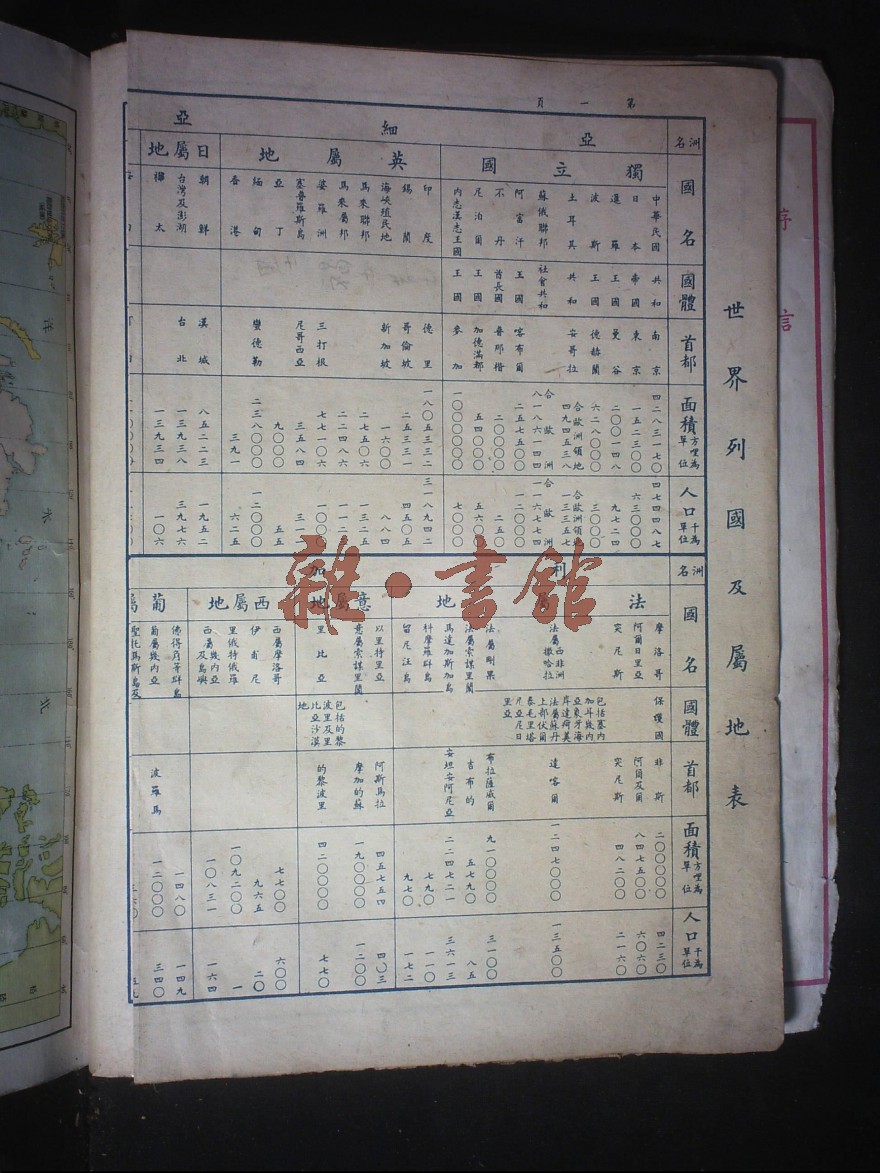 序言
世界列國及屬地表
第一頁
洲名
國名
國體
首都
面積 方哩為單位
人口 千為單位
亞細亞
獨立國
中華民國 共和 南京 四二八三一七〇 四七四四八七
日本 帝國 東京 一五二三〇〇 六三〇〇〇
暹羅 王國 曼谷 二〇〇一四八 九七二四
波斯 王國 德赫蘭 六二八〇〇〇
土耳其 共和 安哥拉 合歐洲領地 四九四五三八 合歐洲領地 一三三五七
蘇俄聯邦 社會共和 合歐洲 八一八六一四四 合歐洲
阿富汗 王國 喀布爾 二五七五〇〇 一二〇〇〇
不丹 酋長國 普那楷 二〇〇〇〇 二五〇
尼泊爾 王國 加德滿都 五四〇〇〇 五六〇〇
內志漢志王國 王國 麥加 一〇〇〇〇〇〇 七〇〇〇
英屬地
印度 德里 一八〇五三三二 三一八九四二
錫蘭 哥倫坡 二五三三一 四五〇五
海峽殖民地 新加坡 一六〇〇 八八四
馬來聯邦 二七五〇六 一三二五
馬來屬邦 二二四八六
婆羅洲 三打根 七七一〇六
塞普羅斯島 尼哥西亞 三五八四
亞丁 九〇〇〇 五五
緬甸 蠻德勒 二三八〇〇〇 一二〇〇〇
香港 三九一 六二五
日屬地
朝鮮 漢城 八五二二三 一九五二
台灣及澎湖 台北 一三九三八 三九七六
樺太 一三九三四 一〇六
洲名
國名
國體
首都
面積 方哩為單位
人口 千為單位
利加
法屬地
摩洛哥 保護國 非斯 二〇〇〇〇〇 四二三〇
阿爾日里亞 阿爾及爾 八四七五〇〇 六〇六〇
突尼斯 突尼斯 四八二〇〇 二一六〇
法屬西非洲 法屬撒哈拉 包括塞內加耳幾內亞象牙海岸達荷美法屬蘇丹上部伏爾泰毛里塔尼亞尼日里亞 達喀爾 一二四七〇〇〇 一三五〇〇
法屬剛果 布拉薩威爾 九一〇〇〇〇 三一〇〇
法屬索謀里蘭 吉布的 五七九〇 八五
馬達加斯加島 安坦安阿尼亞 二二四七二一 三六一三
科摩羅群島 七九〇 一一〇
留尼汪島 九七〇 一七二
意屬地
以里特里亞 阿斯馬拉 四五七五四 四〇三
意屬索謀里蘭 摩加的蘇 一九〇〇〇〇 一二〇〇
里比亞 包括的黎波里及里比亞沙漠地 的黎波里 四二〇〇〇〇 七七〇
西屬地
西屬摩洛哥 七七〇〇 六〇〇
伊甫尼 九六五 二〇
里俄特俄羅 一〇九二〇〇 一
西屬幾內亞及島嶼 一〇八三一 一六四
葡屬
佛得角等群島 一四八〇 一四九
葡屬幾內亞 波羅馬 一二〇〇〇 三四〇
聖托馬斯島及
雜·書館